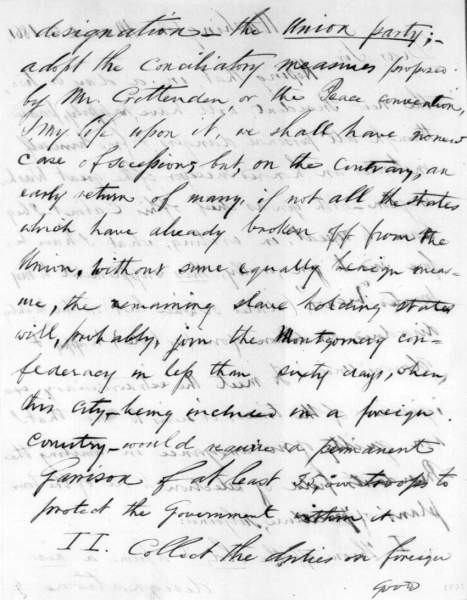 designation – the Union party; –
adopt the Conciliatory measures proposed
by Mr. Crettenden, or the Peace convention,
& my life upon it, we shall have no new
case of secession; but, on the contrary, an
early return of many, if not all the states
which have already broken off from the
Union. Without some equally benign mea-
sure, the remaining slave holding states
will, probably, join the Montgomery con-
federacy in less than sixty days, when,
this city – being included in a foreign
country – would require a permanent
Garrison of at least troops to
protect the Government within it.
II. Collect the duties on foreign
goods